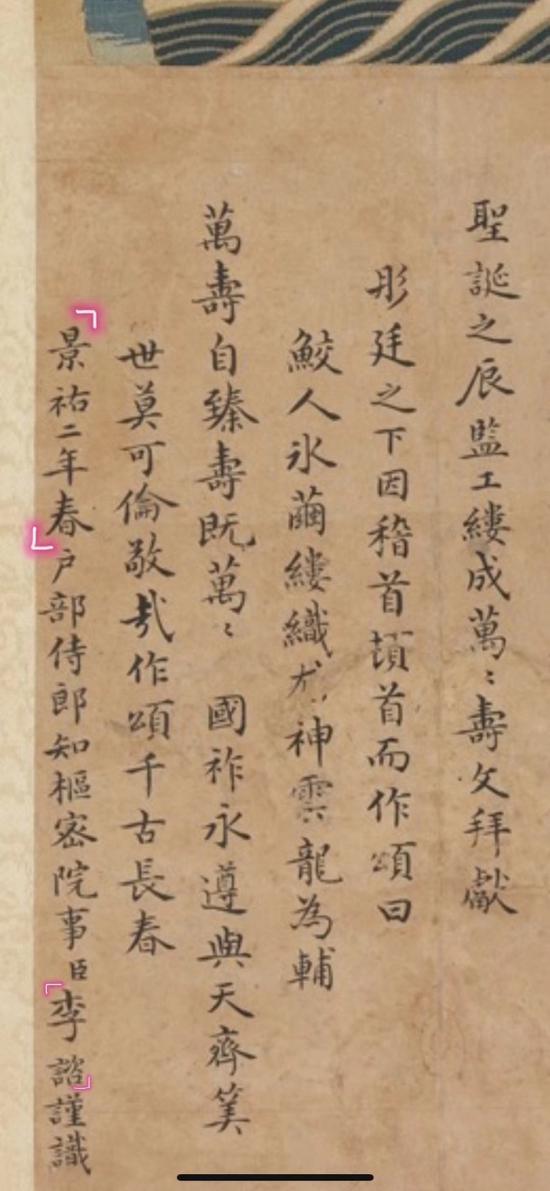 聖誕之辰監工縷成萬〻壽文拜獻
彤廷之下因稽首頓首而作頌曰
鮫人氷繭縷織尤神雲龍為輔
萬壽自臻壽既萬〻 國祚永遵與天齊筭
世莫可倫敬哉作頌千古長春
景祐二年春戶部侍郎知樞密院事臣李諮謹識